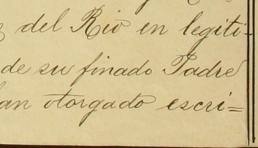 del Rio en legiti-
de su finado Padre
an otorgado escri=